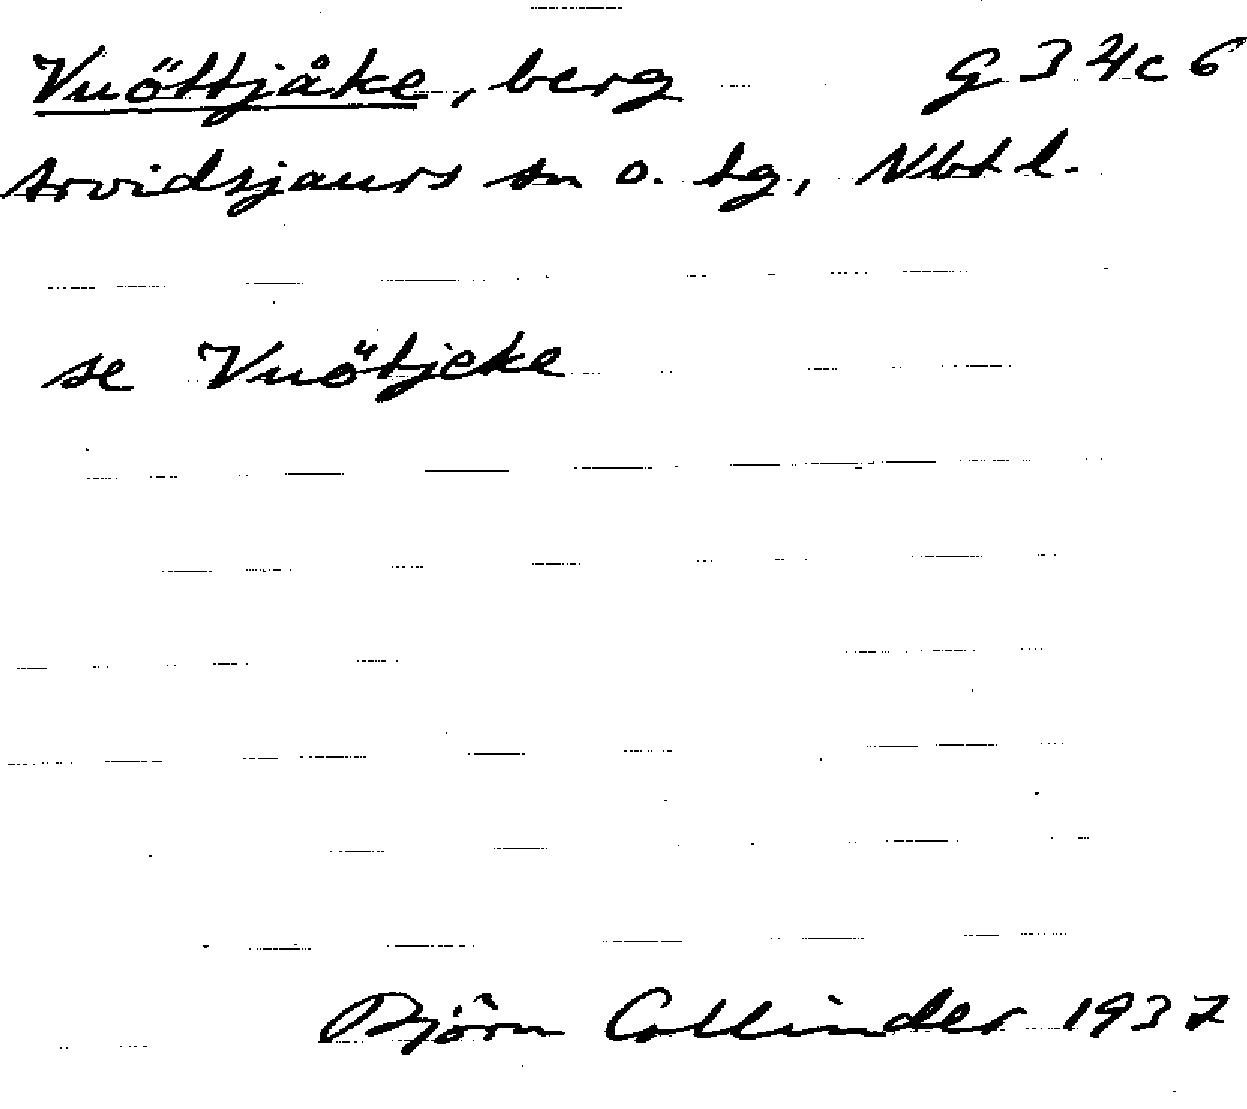 Vuöttjåke, berg G 34c6
Arvidsjaurs sn o. tg, Nbtl.
se Vuötjeke
Björn Collinder 1937